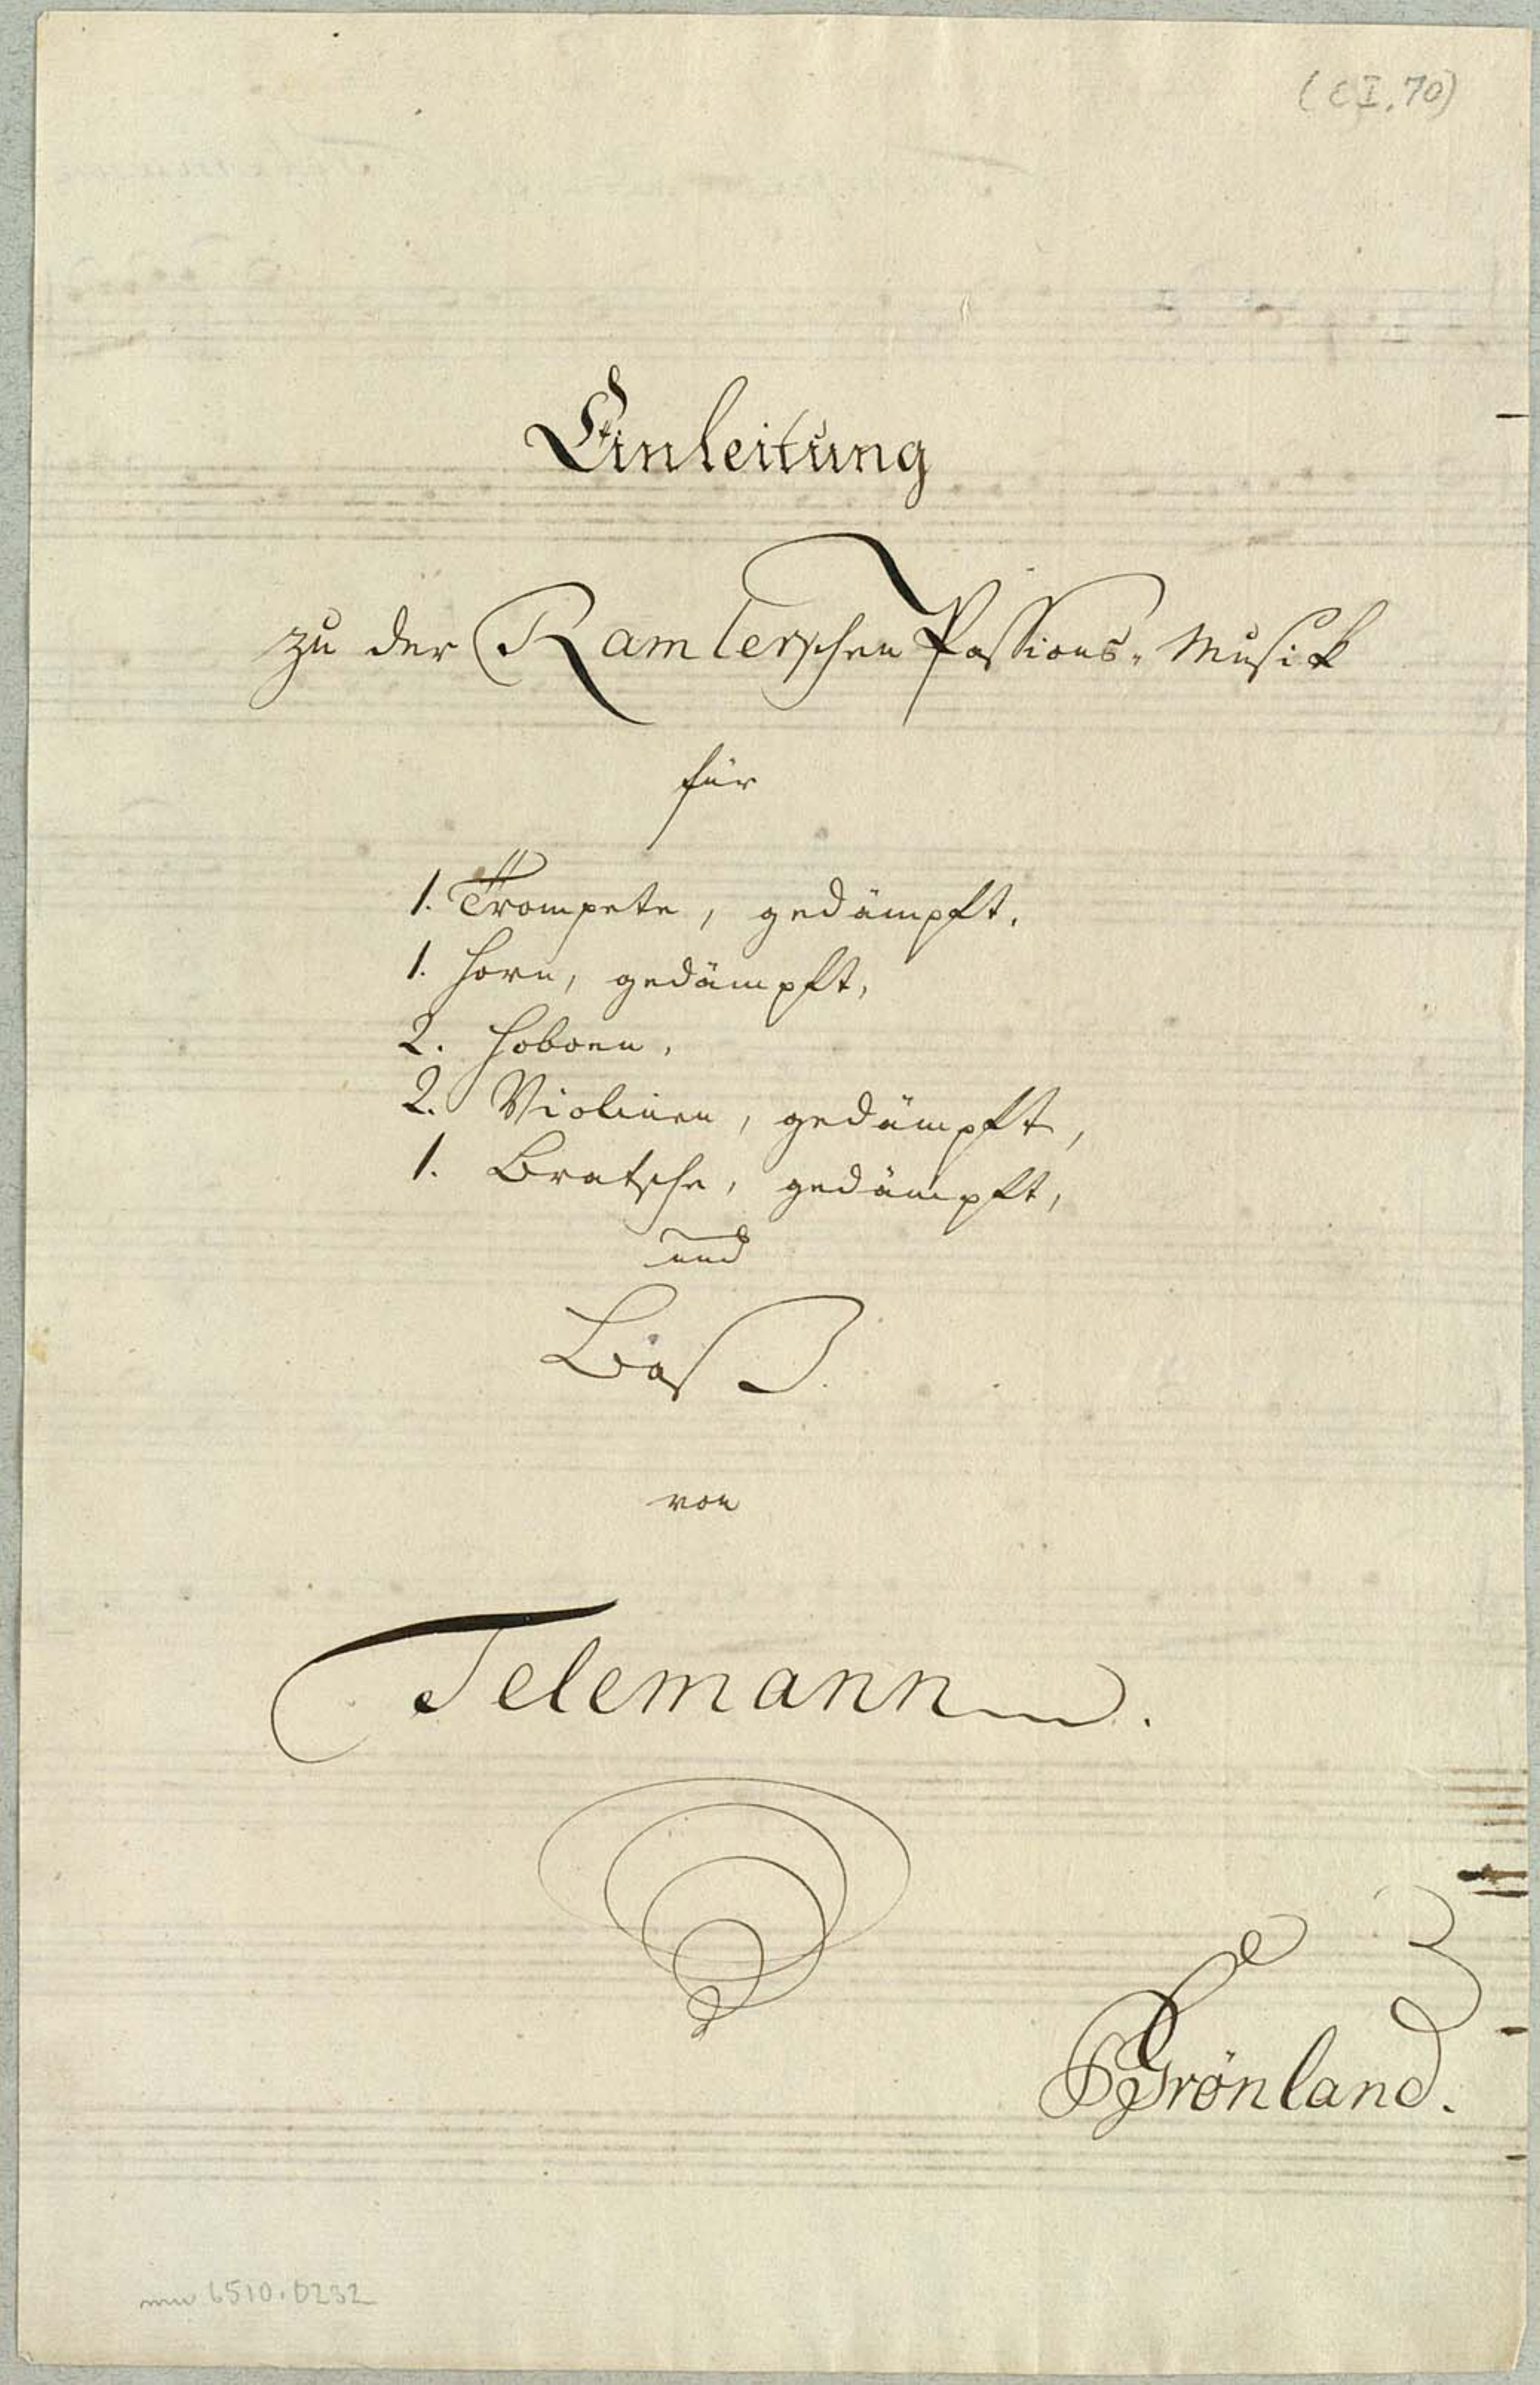 (C I, 70)
Einleitung
zu der Ramlerschen Passions-Musik
für
1. Trompete, gedämpft.
1. Horn, gedämpft,
2. Hoboen,
2. Violinen, gedämpft,
1. Bratsche, gedämpft,
und
Baß.
von
Telemann.
Grönland.
mu 6510.0232